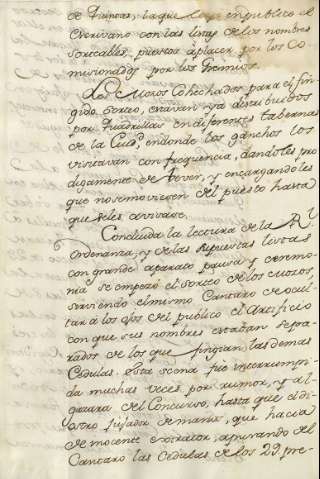 de Quintas, la que leyó en publico el
Escrivano con las listas de los nombres
sorteables, puestas a placer por los Co-
micionados por los Gremios.
Los Mozos Cohechados para el fin-
gido Sorteo, estavan ya distribuidos
por Quadrillas en diferentes tabernas
de la Ciud. en donde los ganchos los
visitavan con frequencia, dandoles pro
digamente de bever, y encargandoles
que no se moviesen del puesto hasta
que se les avisase.
Concluida la lectura de la Rl
ordenanza, y de las supuestas listas
con grande aparato pausa y ceremo
nia se empezó el sorteo de los mozos,
serviendo el mismo Cantaro de ocul-
tar a los ojos del publico el Artificio
con que sus nombres estaban sepa-
rados de los que fingian las demas
Cedulas. Esta scena fue interrumpi-
da muchas veces por rumor, y al-
gazara del Concurso, hasta que el di-
estro jugador de manos, que hacia
de inocente extrator, apurando del
Cantaro las Cedulas de los 29. pre-